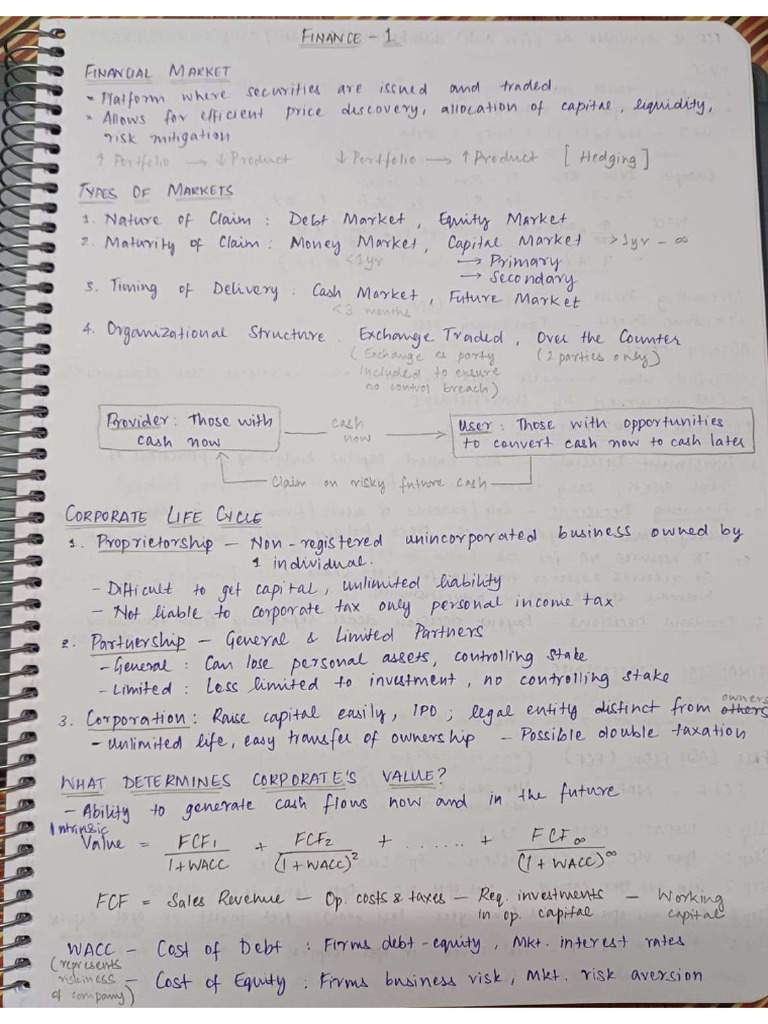 FINANCE - 1
FINANCIAL MARKET
- Platform where securities are issued and traded.
- Allows for efficient price discovery, allocation of capital, liquidity,
risk mitigation
↑ Portfolio → ↓ Product ↓ Portfolio → ↑ Product [Hedging]
TYPES OF MARKETS
1. Nature of Claim : Debt Market, Equity Market
2. Maturity of Claim : Money Market, Capital Market >1yr - ∞
<1yr → Primary
→ Secondary
3. Timing of Delivery : Cash Market, Future Market
<3 months
4. Organizational Structure Exchange Traded, Over the Counter
(Exchange as party (2 parties only)
included to ensure
no control breach)
Provider: Those with cash User: Those with opportunities
cash now now to convert cash now to cash later
Claim on risky future cash
CORPORATE LIFE CYCLE
1. Proprietorship - Non-registered unincorporated business owned by
1 individual.
- Difficult to get capital, unlimited liability
- Not liable to corporate tax only personal income tax
2. Partnership - General & Limited Partners
- General : Can lose personal assets, controlling stake
- Limited : Loss limited to investment, no controlling stake
owners
3. Corporation : Raise capital easily, IPO ; legal entity distinct from others
- Unlimited life, easy transfer of ownership - Possible double taxation
WHAT DETERMINES CORPORATE'S VALUE?
- Ability to generate cash flows now and in the future
Intrinsic
Value = FCF1 / (1+WACC) + FCF2 / (1+WACC)² + ...... + FCF∞ / (1+WACC)^∞
FCF = Sales Revenue - Op. costs & taxes - Req. investments - Working
in op. capital capital
WACC - Cost of Debt : Firms debt-equity, Mkt. interest rates
(represents
riskiness - Cost of Equity : Firms business risk, Mkt. risk aversion
of company)